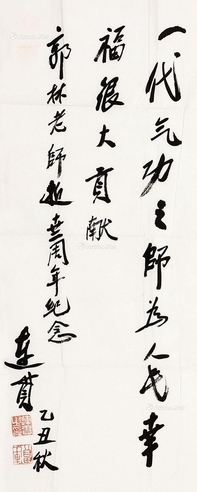 一代气功之師為人民幸
福很大貢献
郭林老師逝世周年纪念
乙丑秋
連貫